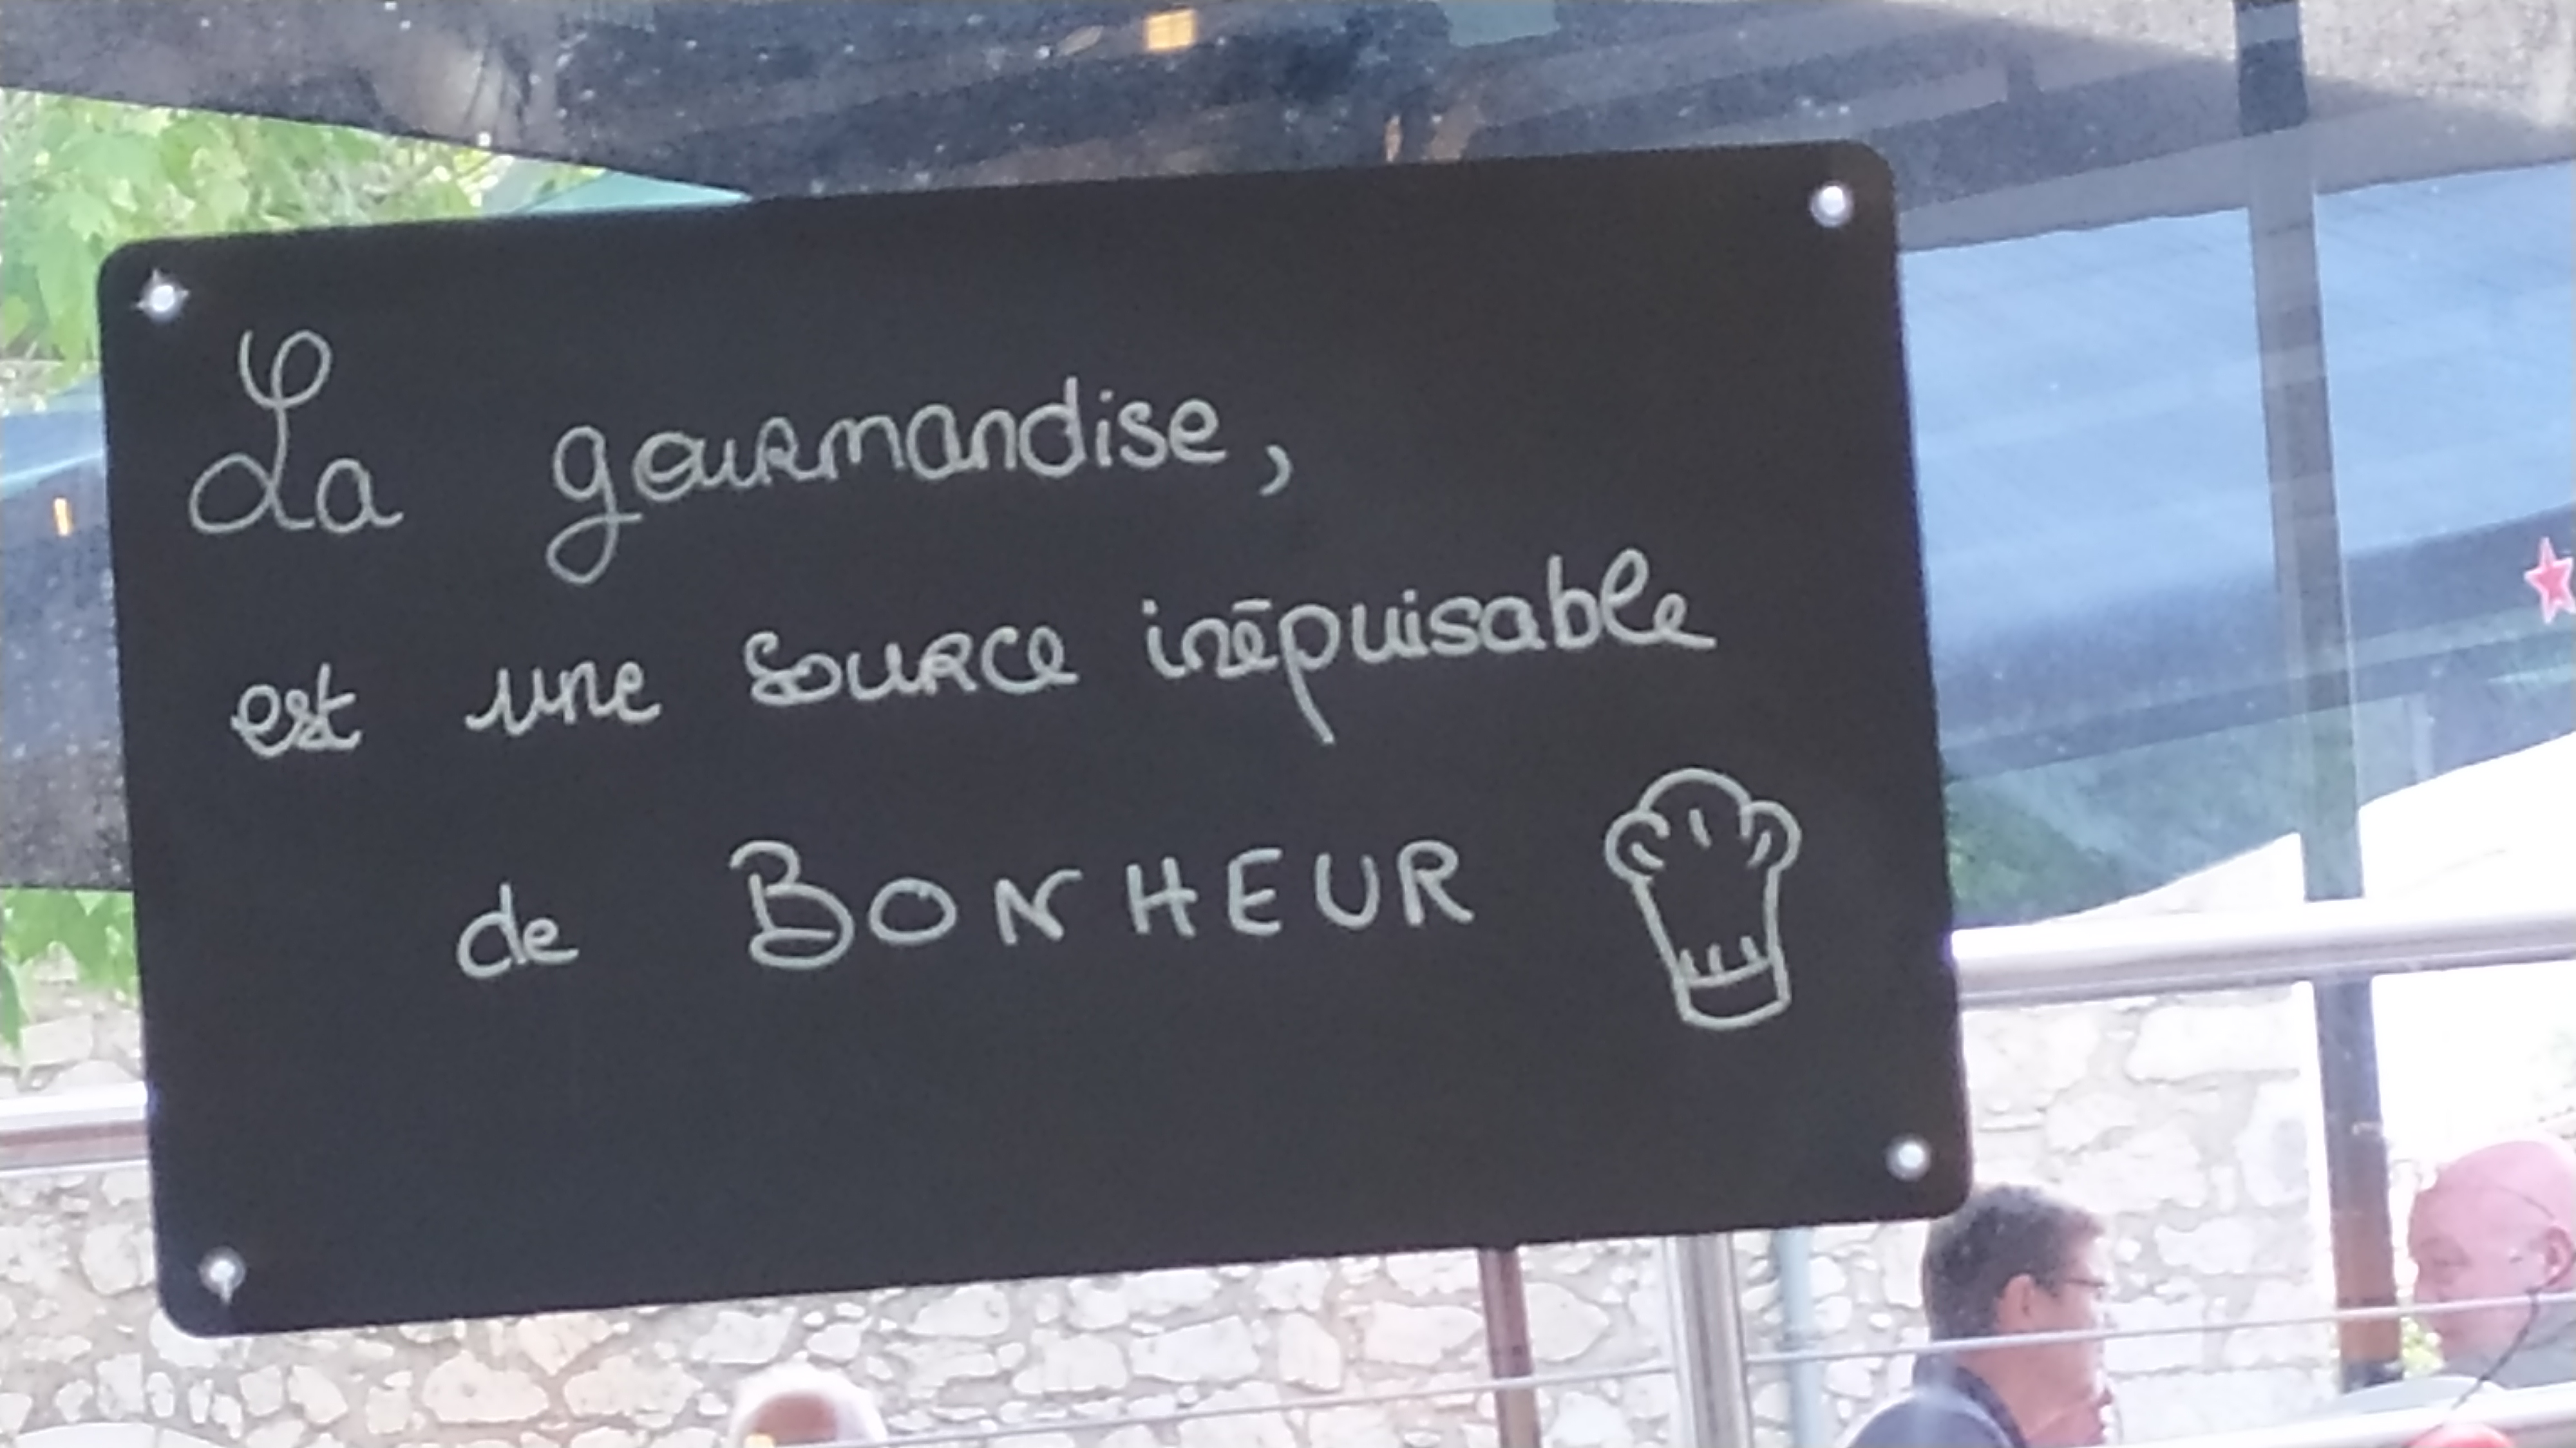 La gourmandise,
est une source inépuisable
de BONHEUR